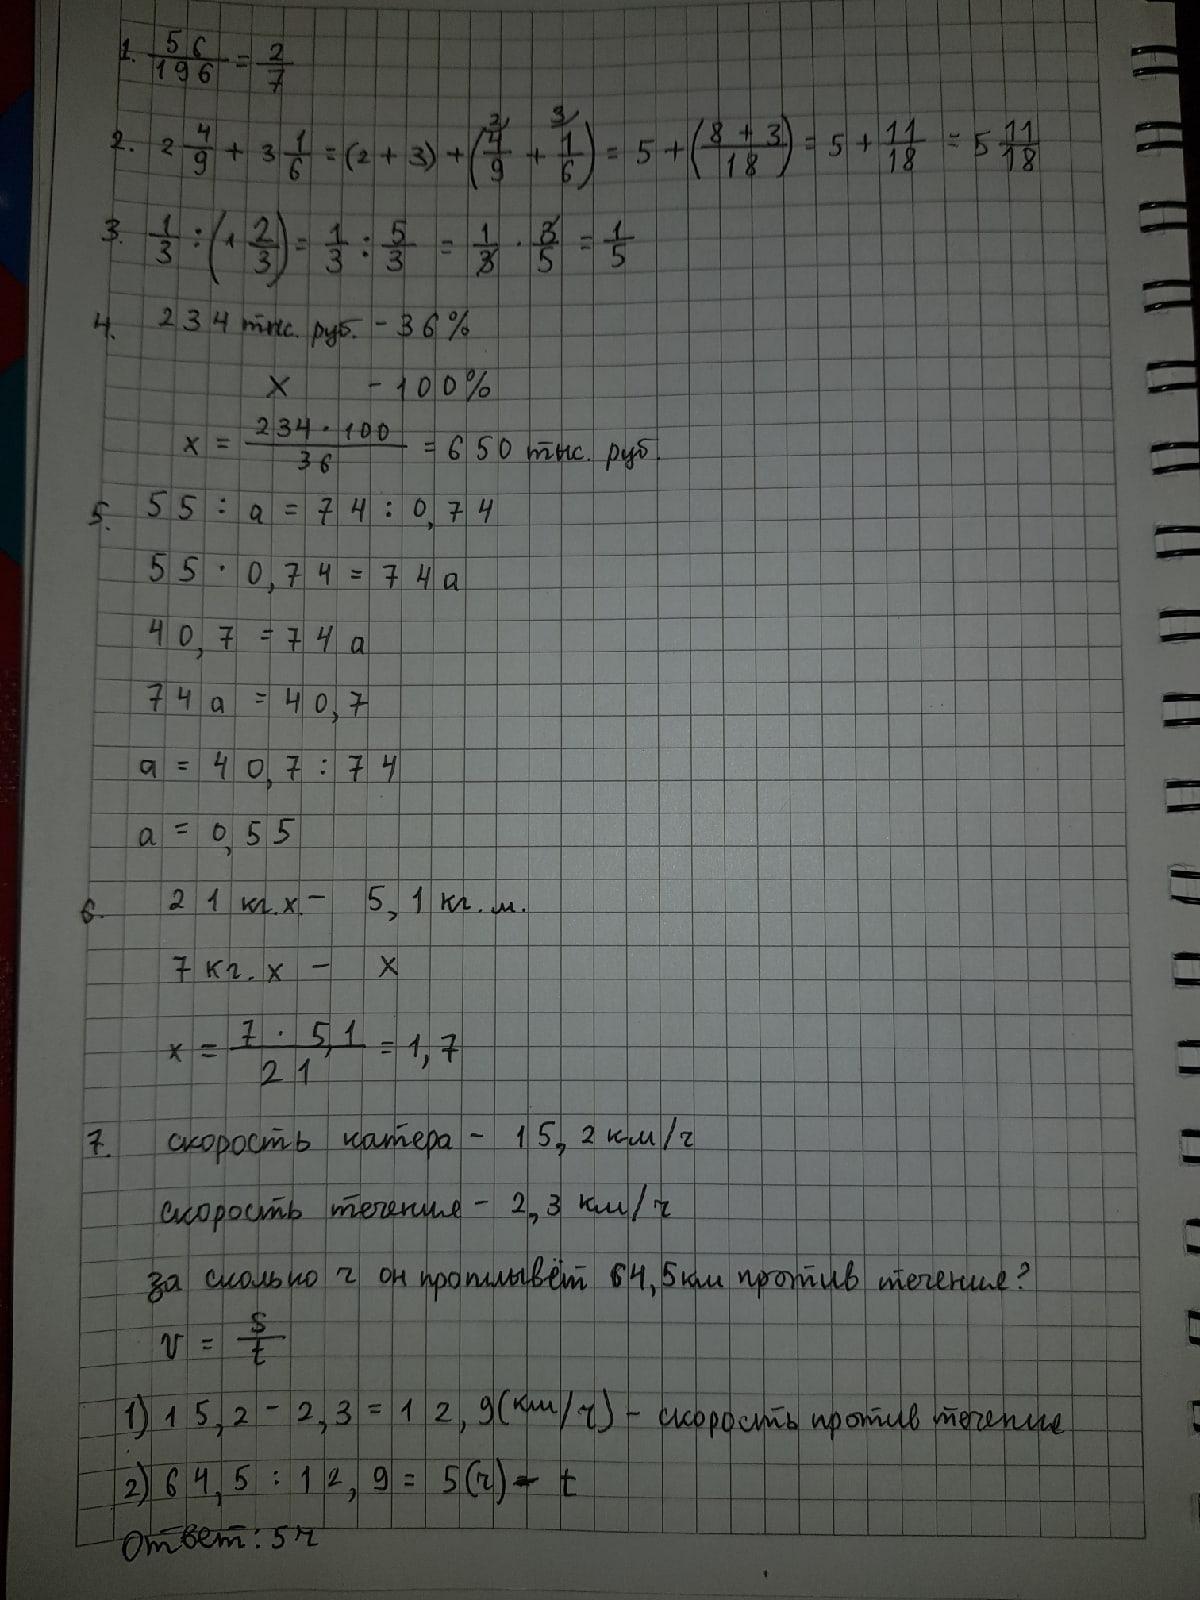 1. 56/196 = 2/7
2. 2 4/9 + 3 1/6 = (2 + 3) + (4/9 + 1/6) = 5 + (8 + 3 / 18) = 5 + 11/18 = 5 11/18
3. 1/3 : (1 2/3) = 1/3 : 5/3 = 1/3 · 3/5 = 1/5
4. 234 тыс. руб. - 36%
x - 100%
x = 234 · 100 / 36 = 650 тыс. руб.
5. 55 : a = 74 : 0,74
55 · 0,74 = 74a
40,7 = 74a
74a = 40,7
a = 40,7 : 74
a = 0,55
6. 21 кг.х - 5,1 кг.м.
7 кг.х - x
x = 7 · 5,1 / 21 = 1,7
7. скорость катера - 15,2 км/ч
скорость течения - 2,3 км/ч
за сколько ч он проплывёт 64,5км против течения?
v = s/t
1) 15,2 - 2,3 = 12,9(км/ч) - скорость против течение
2) 64,5 : 12,9 = 5(ч) - t
Ответ: 5ч